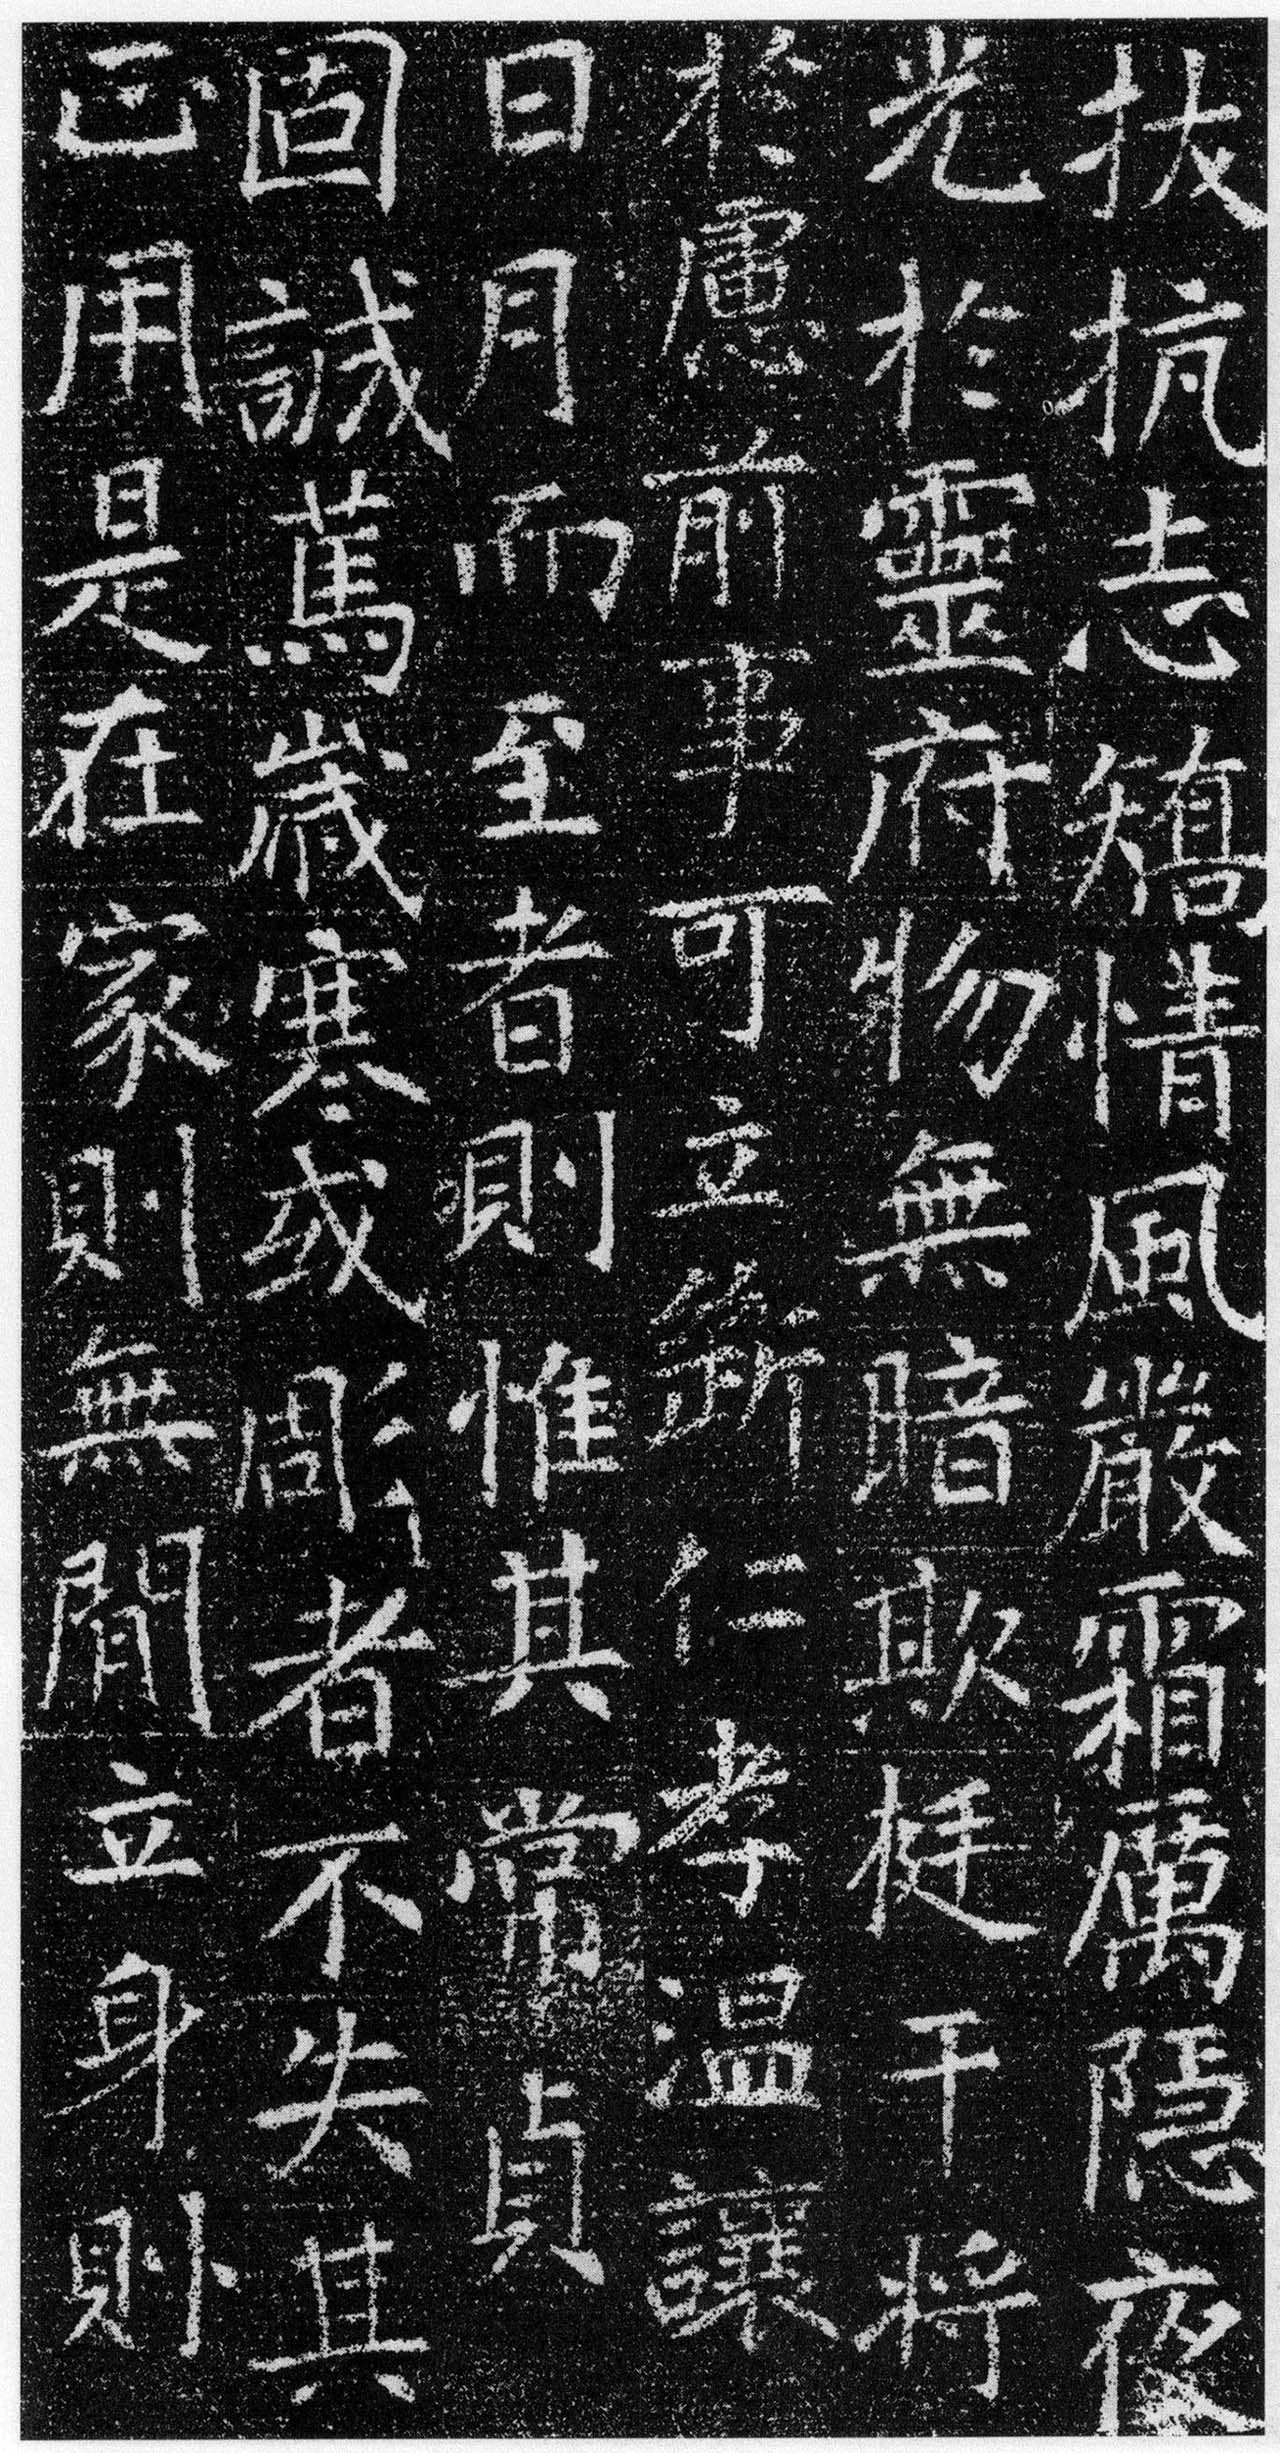 扙抗志矯情風巖霜厲隱夜
光於靈府物無暗欺挺干將
於慮前事可立斷仁孝温讓
日月而至者則惟其常貞
固誠蔦歲寒或彫者不失其
正用是在家則無間立身則